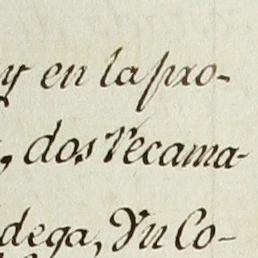 y en la pro-
, dos recama-
dega, Yn Co-